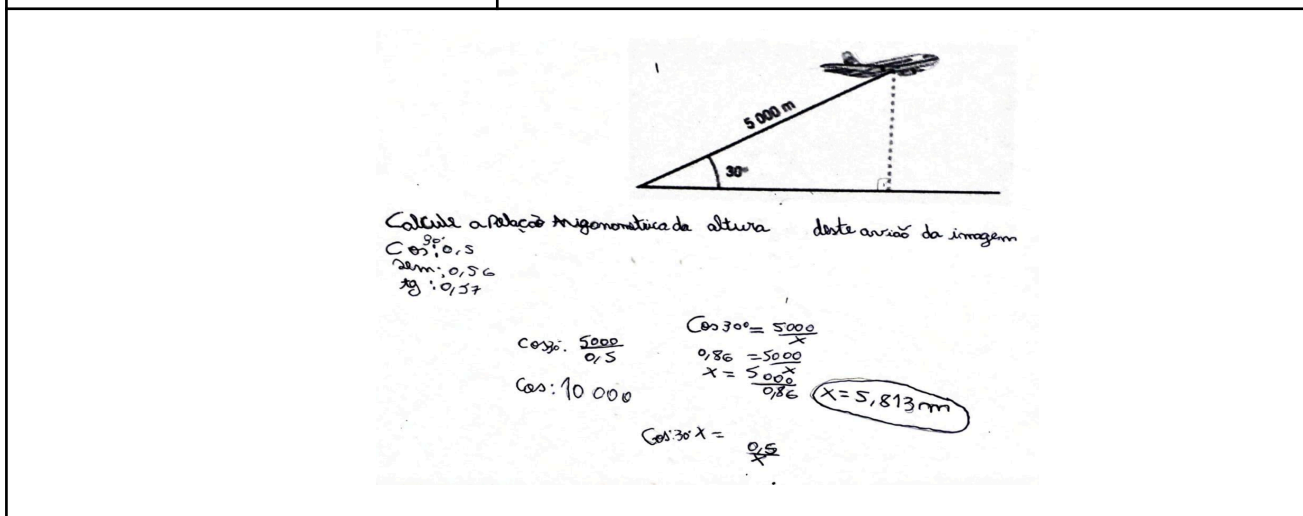 5 000 m
30°
Calcule a Relação trigonométrica da altura deste avião da imagem
30°
Cos: 0,5
sem: 0,56
tg: 0,57
Cos30: 5000/0,5
Cos: 10 000
Cos 30° = 5000/x
0,86 = 5000/x
x = 5000/0,86
x = 5,813 m
Cos: 30: x = 0,5/x